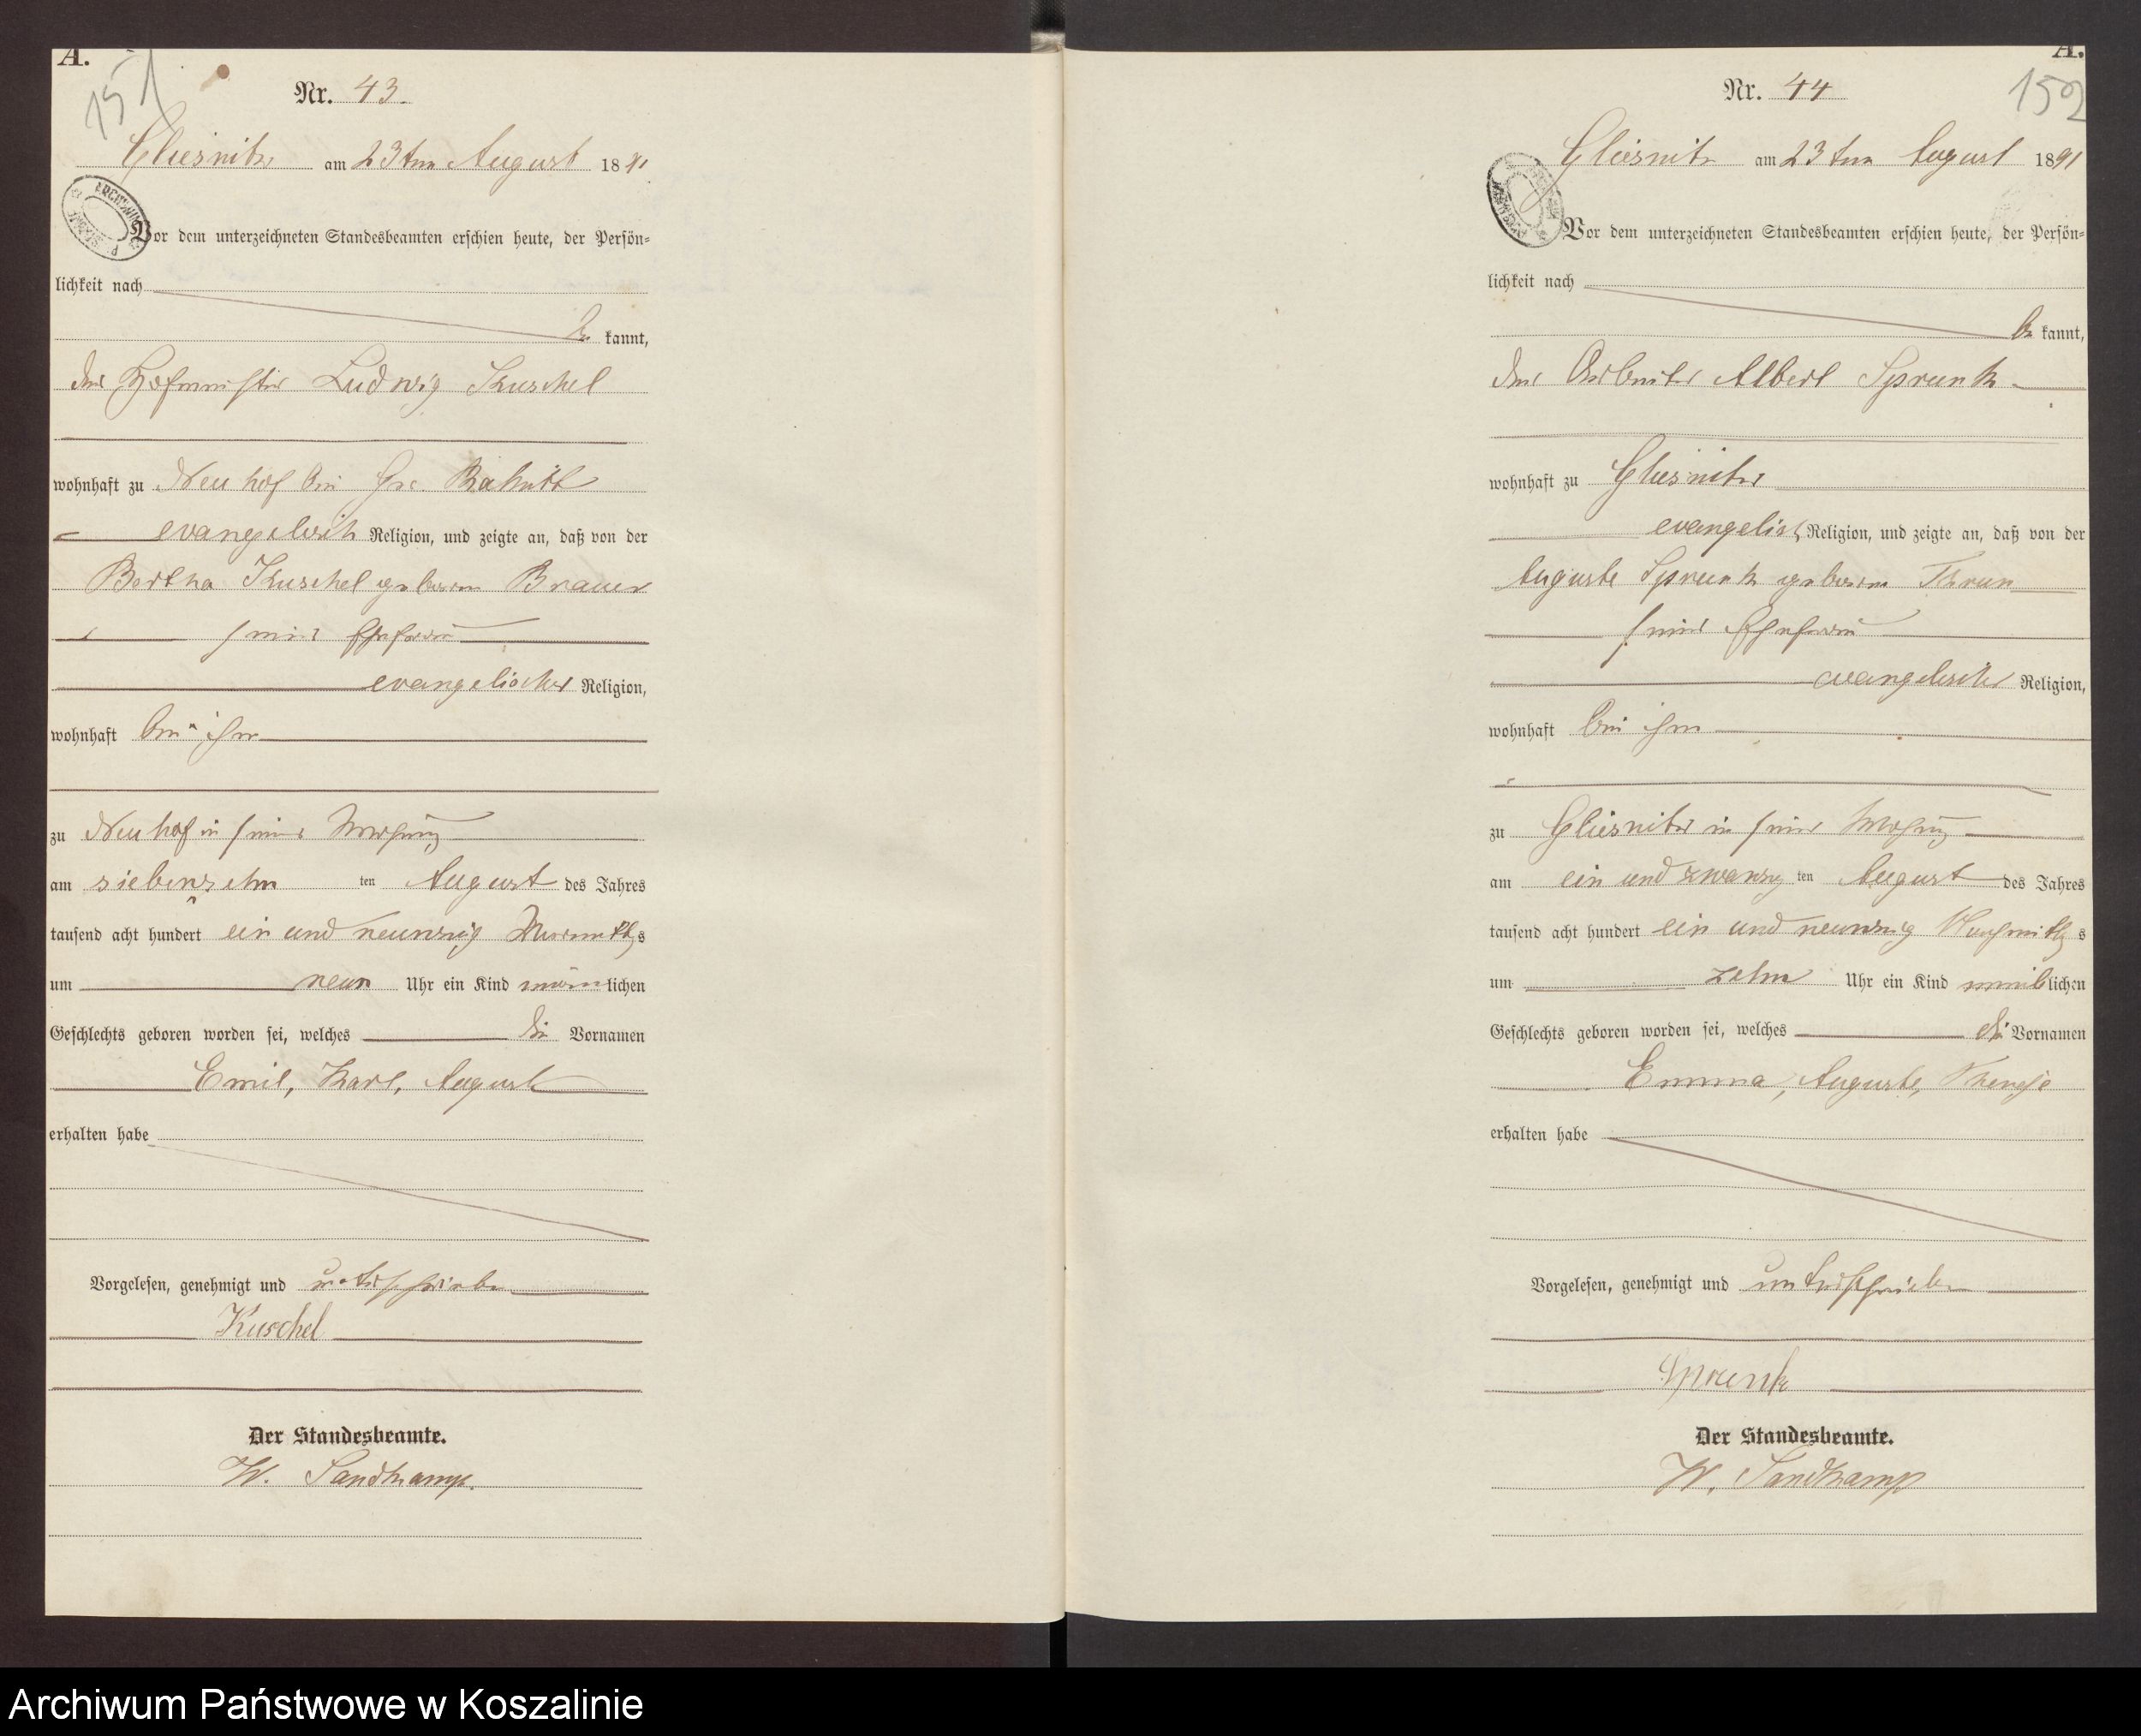 A.
151
Nr. 43.
Gliesnitz am 23ten August 1891
Vor dem unterzeichneten Standesbeamten erschien heute, der Persön-
lichkeit nach
be kannt,
der Hofmeister Ludwig Kuschel
wohnhaft zu Neuhof bei Gr.
evangelisch Religion, und zeigte an, daß von der
Bertha Kuschel geboren Brauer
seiner Ehefrau
evangelischer Religion,
wohnhaft bei ihm
zu Neuhof in seiner Wohnung
am siebenzehn ten August des Jahres
tausend acht hundert ein und neunzig Vormittags
um neun Uhr ein Kind männlichen
Geschlechts geboren worden sei, welches die Vornamen
Emil, Karl, August
erhalten habe
Vorgelesen, genehmigt und unterschrieben
Kuschel
Der Standesbeamte.
W. Sandkamp.
A.
152
Nr. 44
Gliesnitz am 23ten August 1891
Vor dem unterzeichneten Standesbeamten erschien heute, der Persön-
lichkeit nach
be kannt,
der Arbeiter Albert Sprunk
wohnhaft zu Gliesnitz
evangelisch Religion, und zeigte an, daß von der
Auguste Sprunk geboren Thrun
seiner Ehefrau
evangelischer Religion,
wohnhaft bei ihm
zu Gliesnitz in seiner Wohnung
am ein und zwanzig ten August des Jahres
tausend acht hundert ein und neunzig Nachmittags
um zehn Uhr ein Kind weiblichen
Geschlechts geboren worden sei, welches die Vornamen
Emma, Auguste, Therese
erhalten habe
Vorgelesen, genehmigt und unterschrieben
Sprunk
Der Standesbeamte.
W. Sandkamp
Archiwum Państwowe w Koszalinie